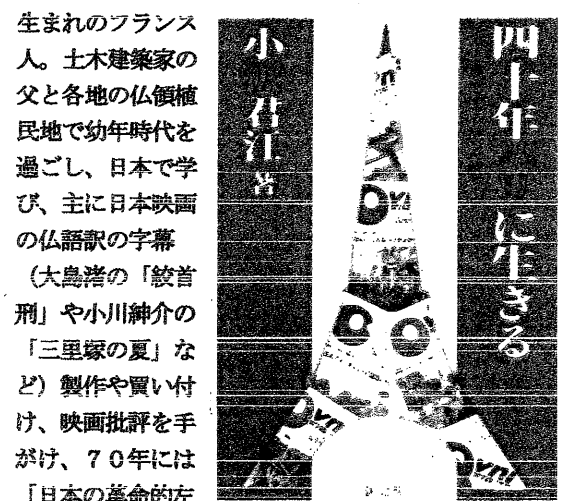 生まれのフランス
人。土木建築家の
父と各地の仏領植
民地で幼年時代を
過ごし、日本で学
び、主に日本映画
の仏語訳の字幕
（大島渚の「絞首
刑」や小川紳介の
「三里塚の夏」な
ど）製作や買い付
け、映画批評を手
がけ、７０年には
「日本の革命的左
四十年 に生きる
小 君江 著
Ovni
Ovni